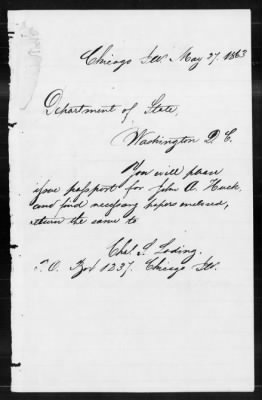 Chicago Ill May 27. 1863
Department of State,
Washington D. C.
You will please
issue passport for John A. Huck
and find necessary papers enclosed,
return the same to
Chs. S. Loding.
P. O. Box 1237. Chicago Ill.